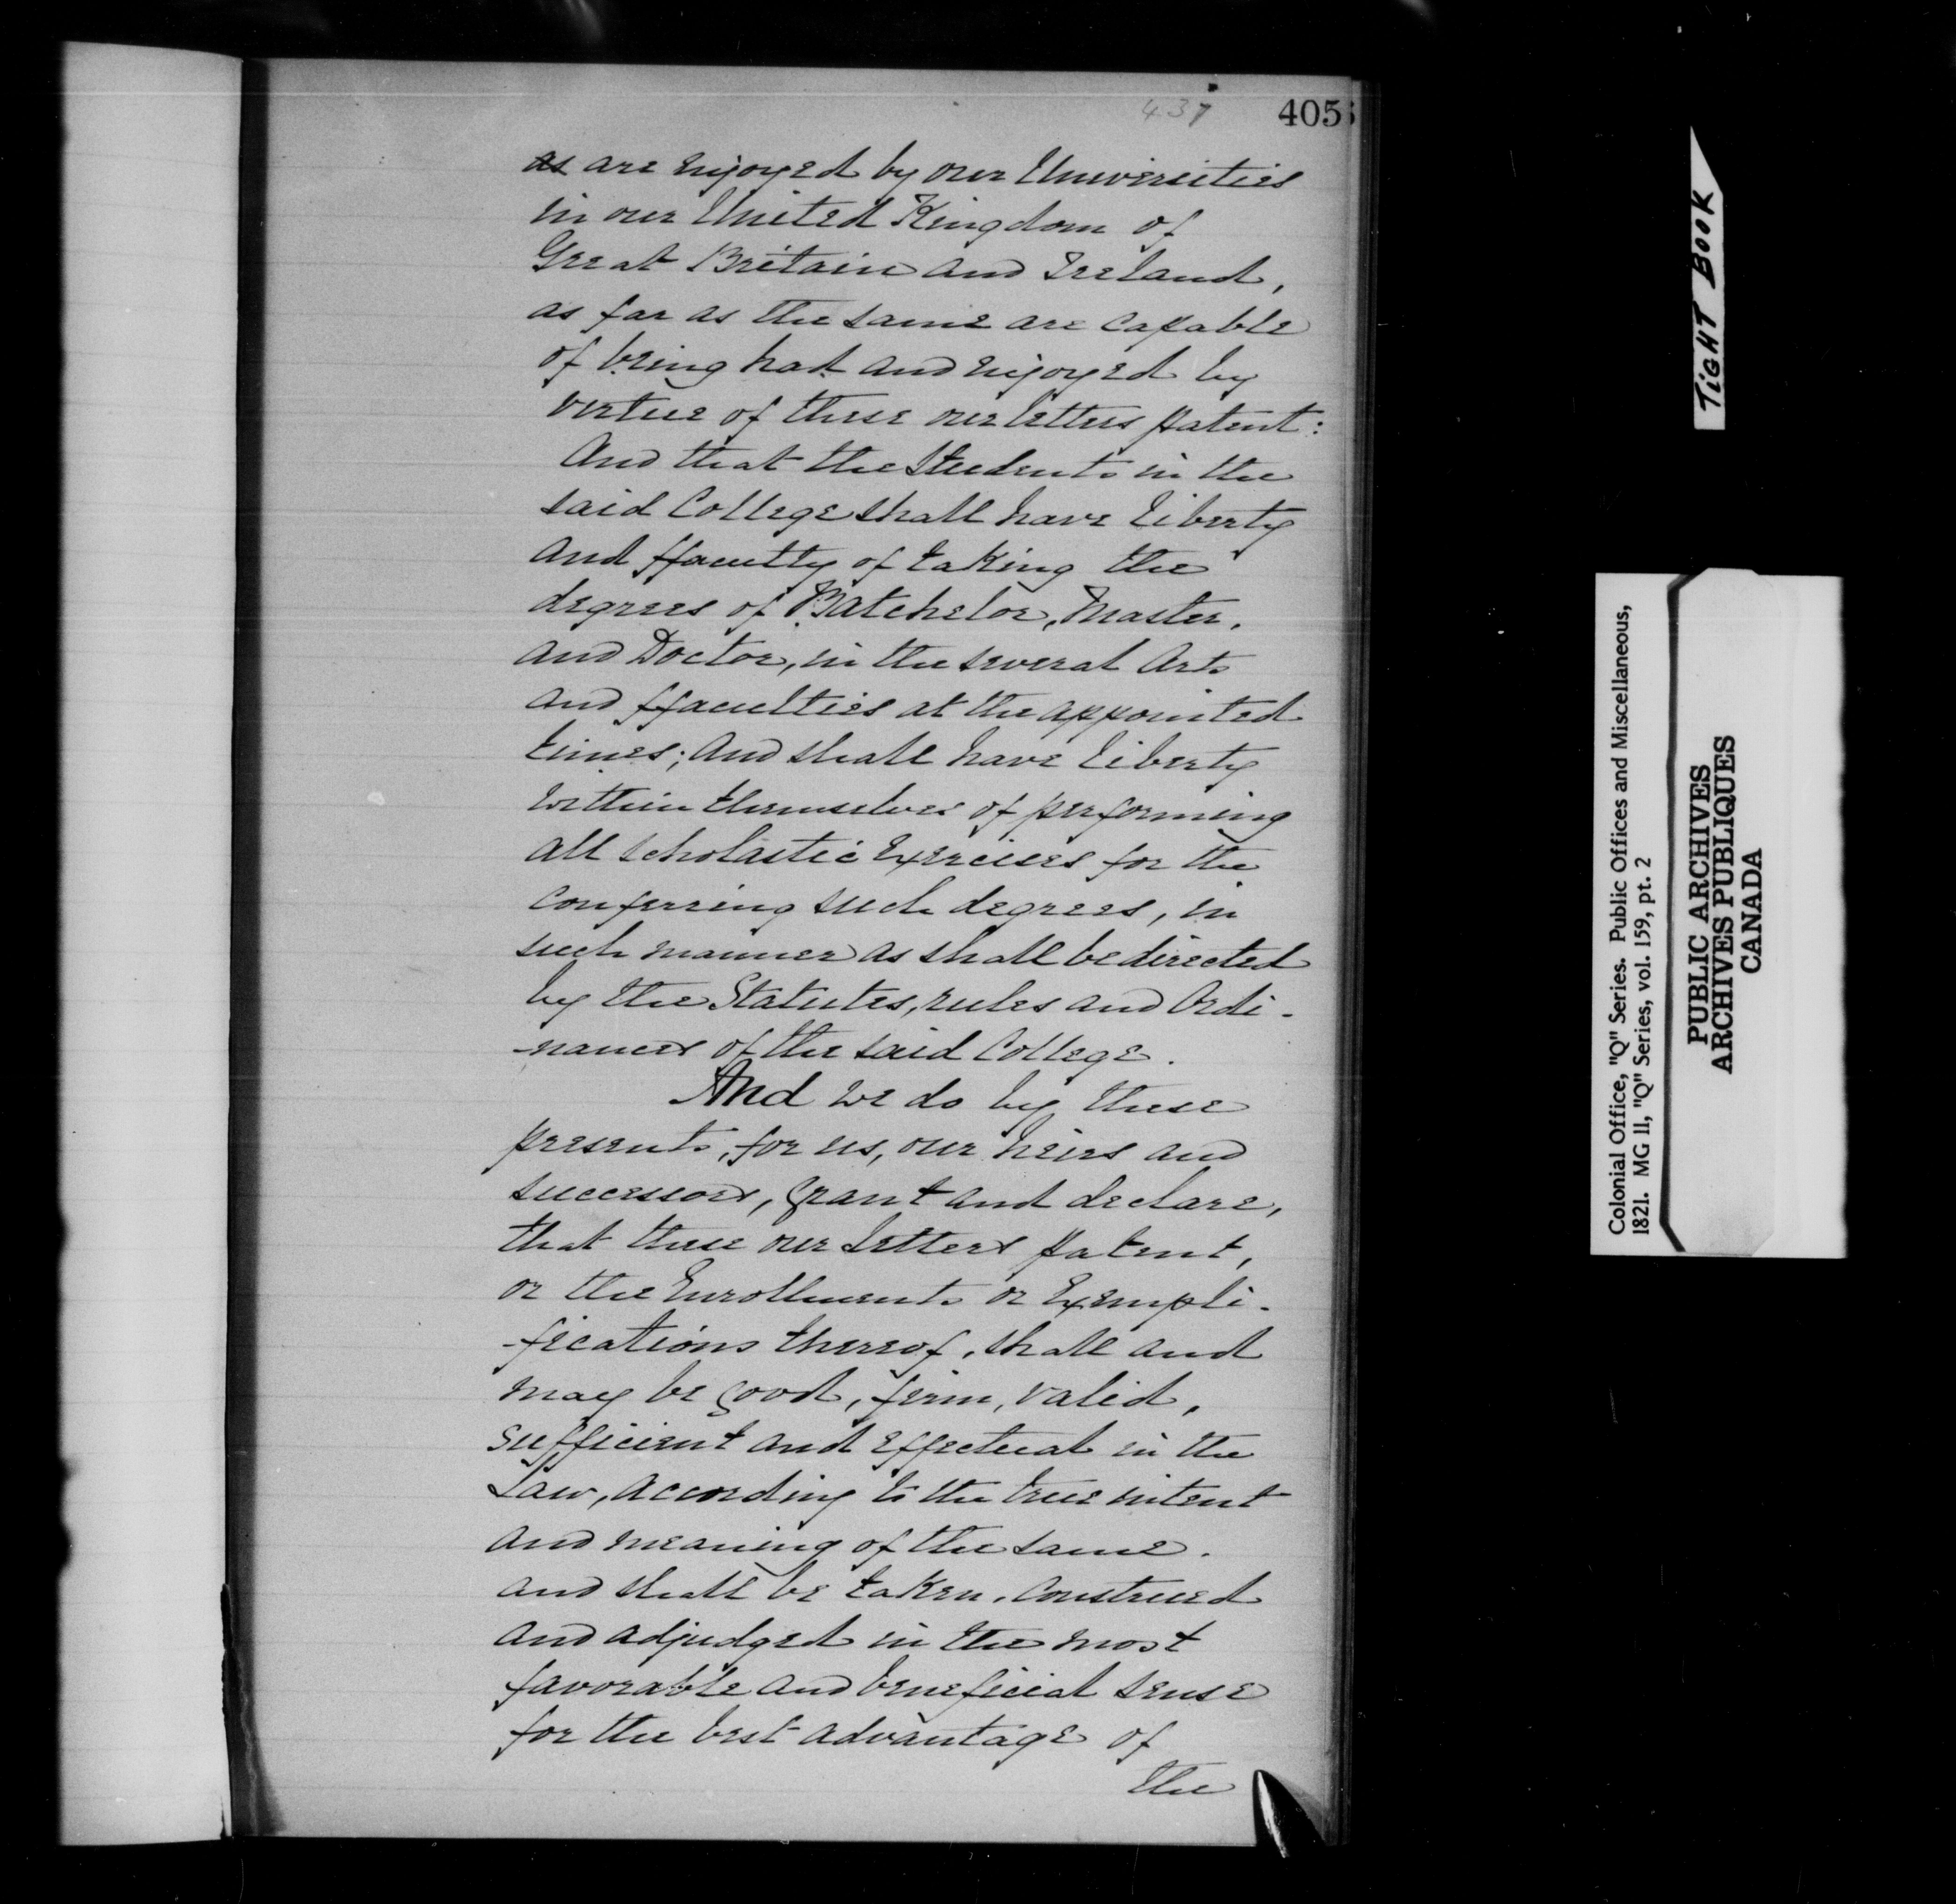 437
405
as are enjoyed by our Universities
in our United Kingdom of
Great Britain and Ireland,
as far as the same are capable
of being had and enjoyed by
virtue of these our letters patent:
And that the Students in the
said College shall have liberty
and ffaculty of taking the
degrees of Batchelor, Master,
and Doctor, in the several Arts
and ffaculties at the appointed
times; and shall have liberty
within themselves of performing
all scholastic Exercises for the
conferring such degrees, in
such manner as shall be directed
by the Statutes, rules and Ordi-
-nances of the said College.
And we do by these
presents, for us, our heirs and
successors, grant and declare,
that these our letters patent,
or the Enrollments or Exempli-
-fications thereof, shall and
may be good, firm, valid,
sufficient and effectual in the
Law, according to the true intent
and meaning of the same.
and shall be taken, construed
and adjudged in the most
favorable and beneficial sense
for the best advantage of
the
TIGHT BOOK
Colonial Office, "Q" Series. Public Offices and Miscellaneous,
1821. MG 11, "Q" Series, vol. 159, pt. 2
PUBLIC ARCHIVES
ARCHIVES PUBLIQUES
CANADA